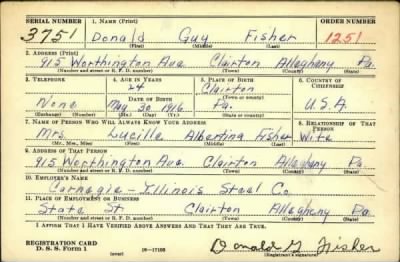 SERIAL NUMBER 1. NAME (Print) ORDER NUMBER
3751 Donald Guy Fisher 1251
(First) (Middle) (Last)
2. ADDRESS (Print)
915 Worthington Ave. Clairton Allegheny Pa.
(Number and street or R. F. D. number) (Town) (County) (State)
3. TELEPHONE 4. AGE IN YEARS 5. PLACE OF BIRTH 6. COUNTRY OF CITIZENSHIP
24 Clairton
DATE OF BIRTH (Town or county)
None May 30, 1916 Pa. U.S.A.
(Exchange) (Number) (Mo.) (Day) (Yr.) (State or country)
7. NAME OF PERSON WHO WILL ALWAYS KNOW YOUR ADDRESS 8. RELATIONSHIP OF THAT PERSON
Mrs. Lucille Albertina Fisher Wife
(Mr., Mrs., Miss) (First) (Middle) (Last)
9. ADDRESS OF THAT PERSON
915 Worthington Ave. Clairton Allegheny Pa
(Number and street or R. F. D. number) (Town) (County) (State)
10. EMPLOYER'S NAME
Carnegie-Illinois Steel Co.
11. PLACE OF EMPLOYMENT OR BUSINESS
State St. Clairton Allegheny Pa.
(Number and street or R. F. D. number) (Town) (County) (State)
I AFFIRM THAT I HAVE VERIFIED ABOVE ANSWERS AND THAT THEY ARE TRUE.
REGISTRATION CARD
D. S. S. Form 1 16—17105 Donald G. Fisher
(over) (Registrant's signature)